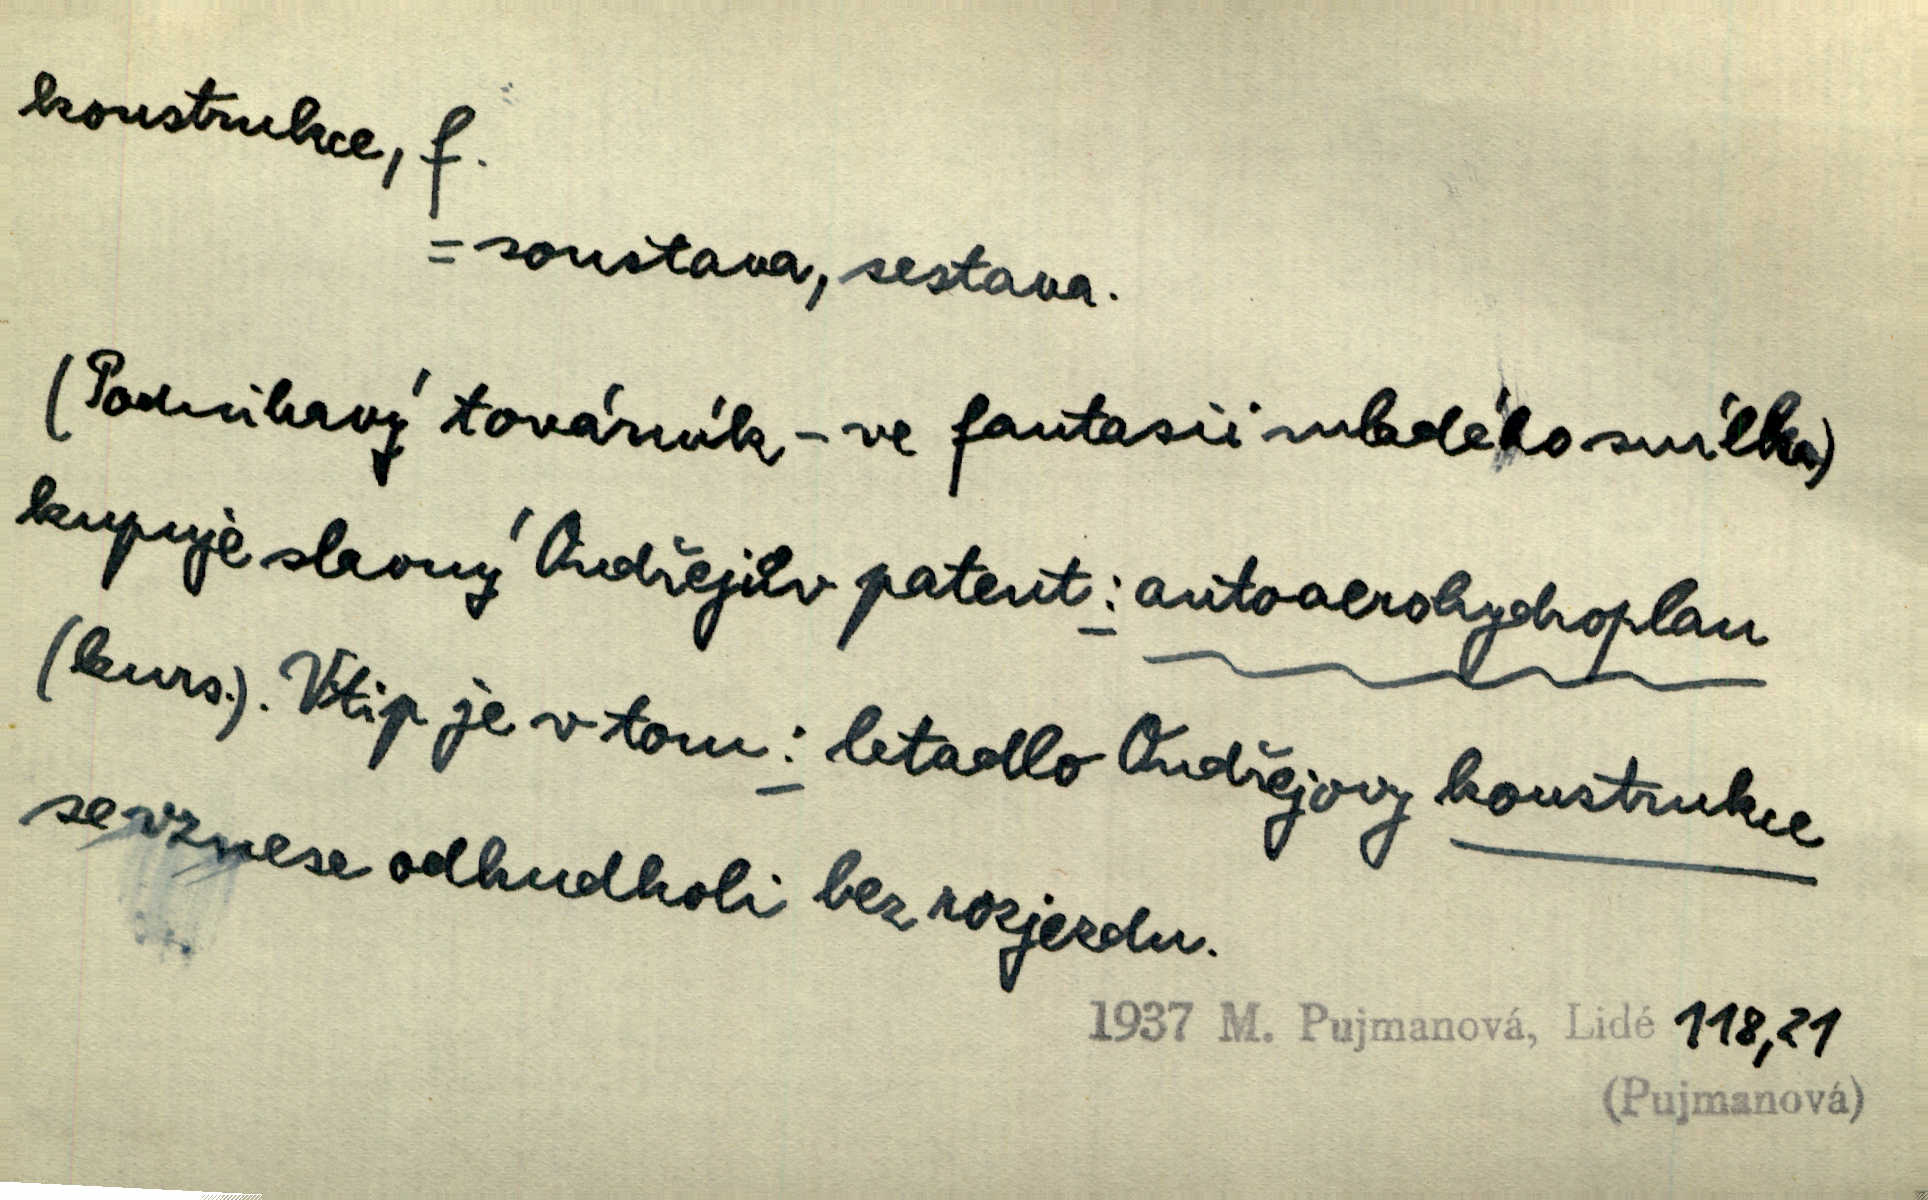 konstrukce, f.
= soustava, sestava.
(Podnikavý továrník – ve fantasii mladého snílka)
kupuje slavný Ondřejův patent: autoaerohydroplan
(kurs.). Vtip je v tom: letadlo Ondřejovy konstrukce
se vznese odkudkoli bez rozjezdu.
1937 M. Pujmanová, Lidé 118,21
(Pujmanová)